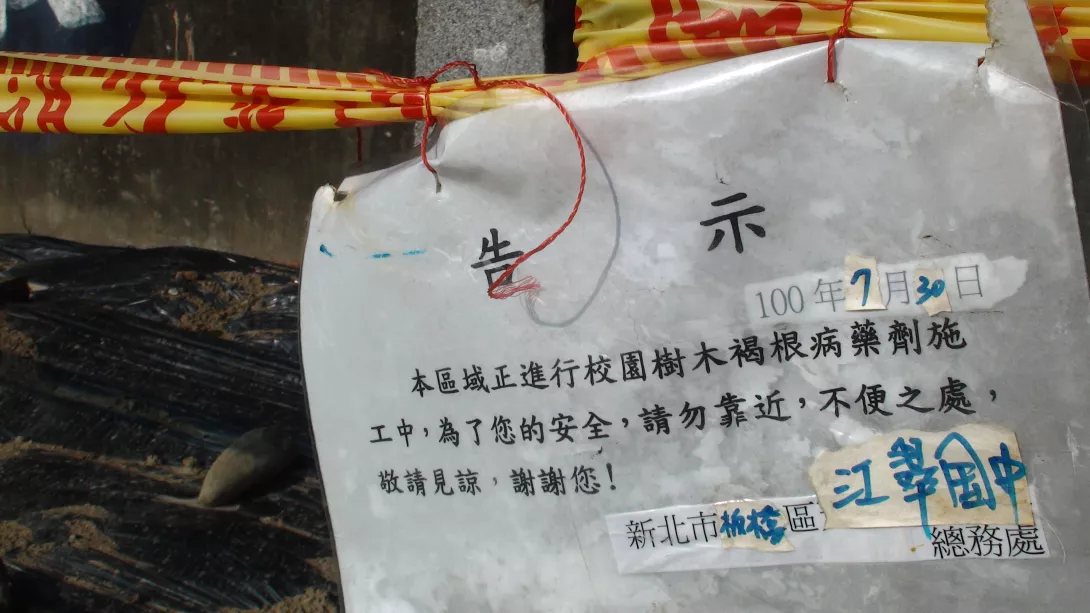 告示
100年7月30日
本區域正進行校園樹木褐根病藥劑施
工中,為了您的安全,請勿靠近,不便之處,
敬請見諒,謝謝您!
江翠國中
新北市板橋區
總務處